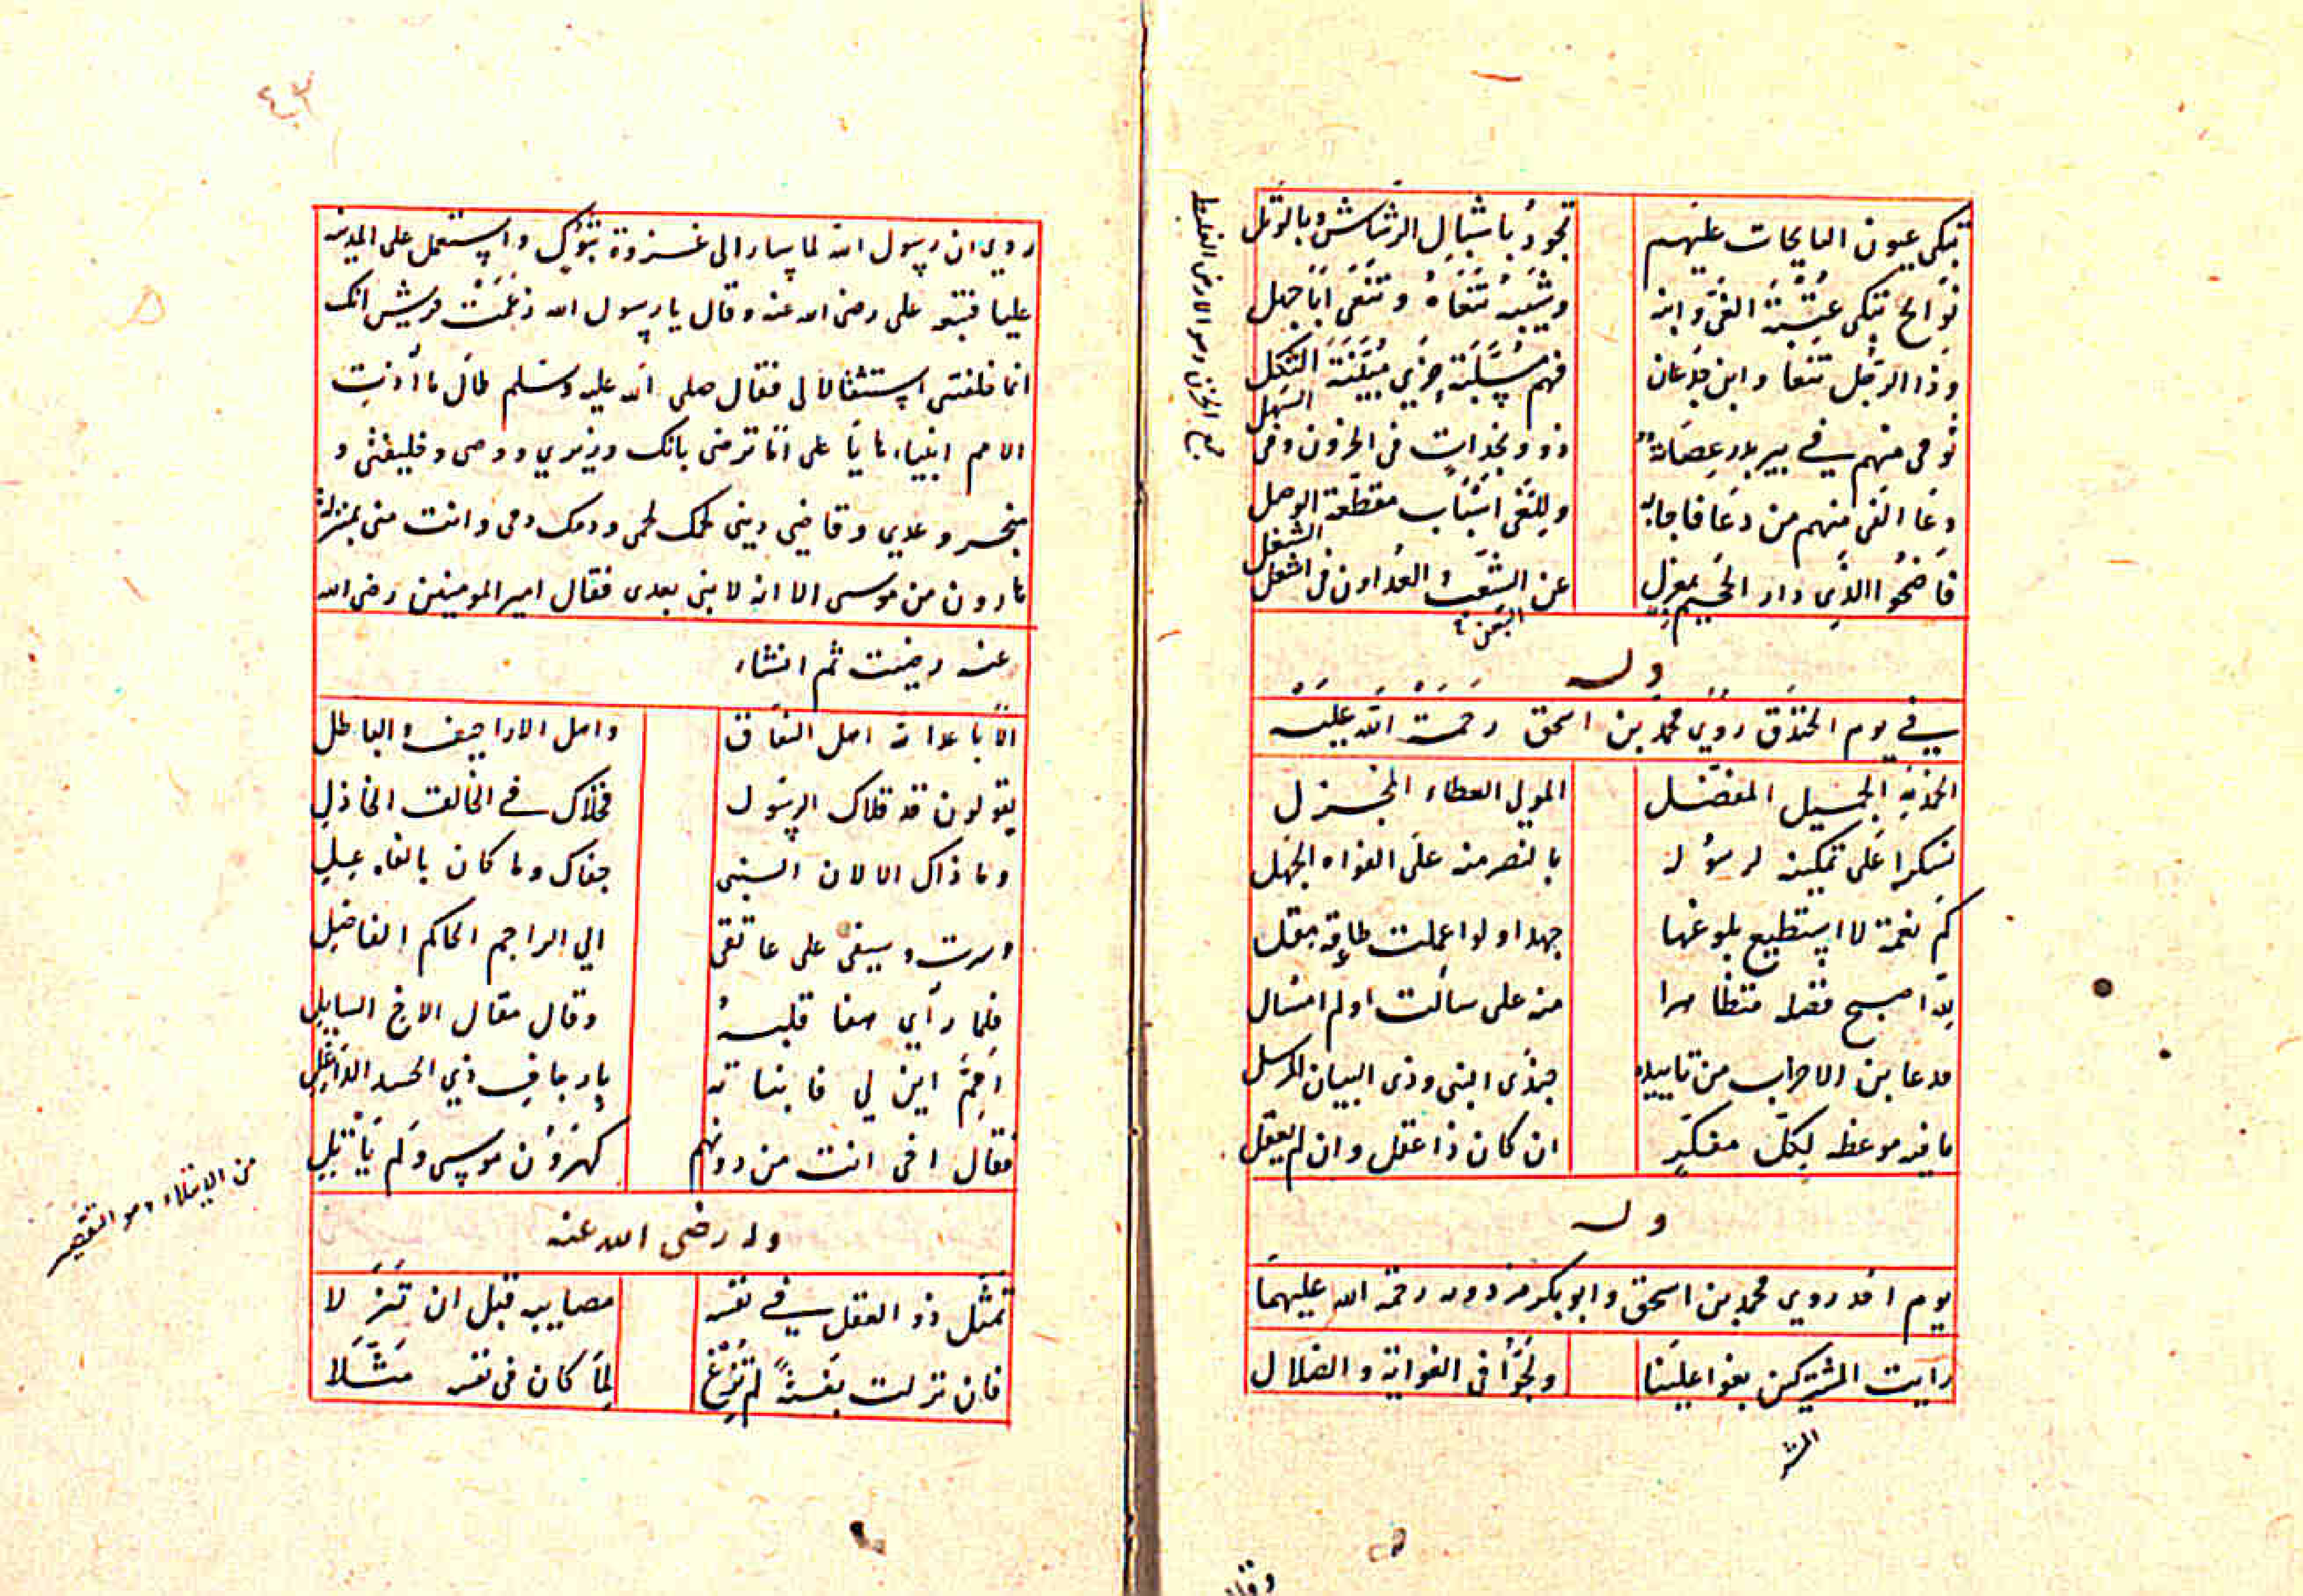 تبكى عيون النايحات عليهم تجود باسبال الرشاش وبالوبل
نوايح تبكى عتبة الغى وابنه وشيبة تنعاه وتنعى اباجهل
وذا الرجل تنعا وابن جدعان فهم مسلبة حرى مبينة الثكل
ثوى منهم في بير بدر عصابة ذوو نجدات فى الحزون وفى السهل
دعا الغى منهم من دعا فاجابه وللغى اسباب مقطعة الوصل
فاضحوا الذى دار الجحيم بمعزل عن الشغب العداون فى اشغل الشغل
وله
في يوم الخندق روى محمد بن اسحق رحمة الله عليه
الحمد لله الجميل المفضل المولى العطاء المجزل
شكرا على تمكينه لرسوله بالنصر منه على الغواه الجهل
كم نعمة لا استطيع بلوغها جهدا ولو اعملت طاقة مقل
لله اصبح فضله متظاهرا منه على سالت اولم اسال
ما فيه موعظه لكل مفكر ان كان ذا عقل وان لم يعقل
وله
يوم احد روى محمد بن اسحق وابوبكر رحمة الله عليهما
رايت المشركين بغوا علينا ولجوا فى الغواية والضلال
جمع الحزن وهو الارض الغليظ
٤٣
روى ان رسول الله لما سار الى غزوة تبوك واستعمل على المدينه
عليا على رضى الله عنه وقال يا رسول الله زعمت قريش انك
انما خلفتنى استثقالا لى فقال صلى الله عليه وسلم طال ما آذيت
الامم انبياءها يا على اما ترضى بانك وزيرى ووصى وخليفتى و
منجز وعدى وقاضى دينى لحمك لحمى ودمك دمى وانت منى بمنزلة
هارون من موسى الا انه لا نبى بعدى فقال امير المومنين رضى الله
عنه رضيت ثم انشاء
الا باعد الله اهل النفاق واهل الاراجيف والباطل
يقولون قد قلاك الرسول فخلاك فى الخالف الخاذل
وما ذاك الا لان النبى جفاك وما كان بالفاعل
وسرت وسيفى على عاتقى الى الراحم الحاكم الفاضل
فلما رآى هفا قلبه وقال مقال الاخ السايل
اممن ابن لى فانباته بارجاف ذي الحسد الداغل
فقال اخى انت من دونهم كهرون موسى ولم يأتل
وله رضى الله عنه
تمثل ذو العقل في نفسه مصايبه قبل ان تنزلا
فان نزلت بغتة لم ترع لما كان فى نفسه مثلا
من الايتلاء وهو التقصير